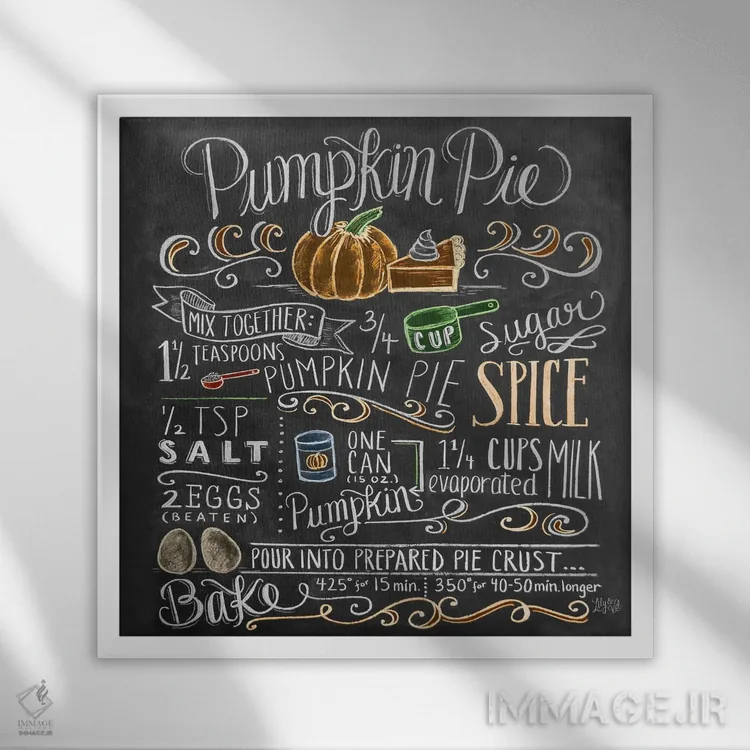 Pumpkin Pie
MIX TOGETHER:
3/4 CUP Sugar
1 1/2 TEASPOONS
PUMPKIN PIE SPICE
1/2 TSP
SALT
2 EGGS
(BEATEN)
ONE
CAN
(15 OZ.)
Pumpkin
1 1/4 CUPS
evaporated MILK
POUR INTO PREPARED PIE CRUST...
Bake 425° for 15 min. 350° for 40-50 min. longer
Lily & Val
IMMAGE
IMMAGE.IR
IMMAGE.IR